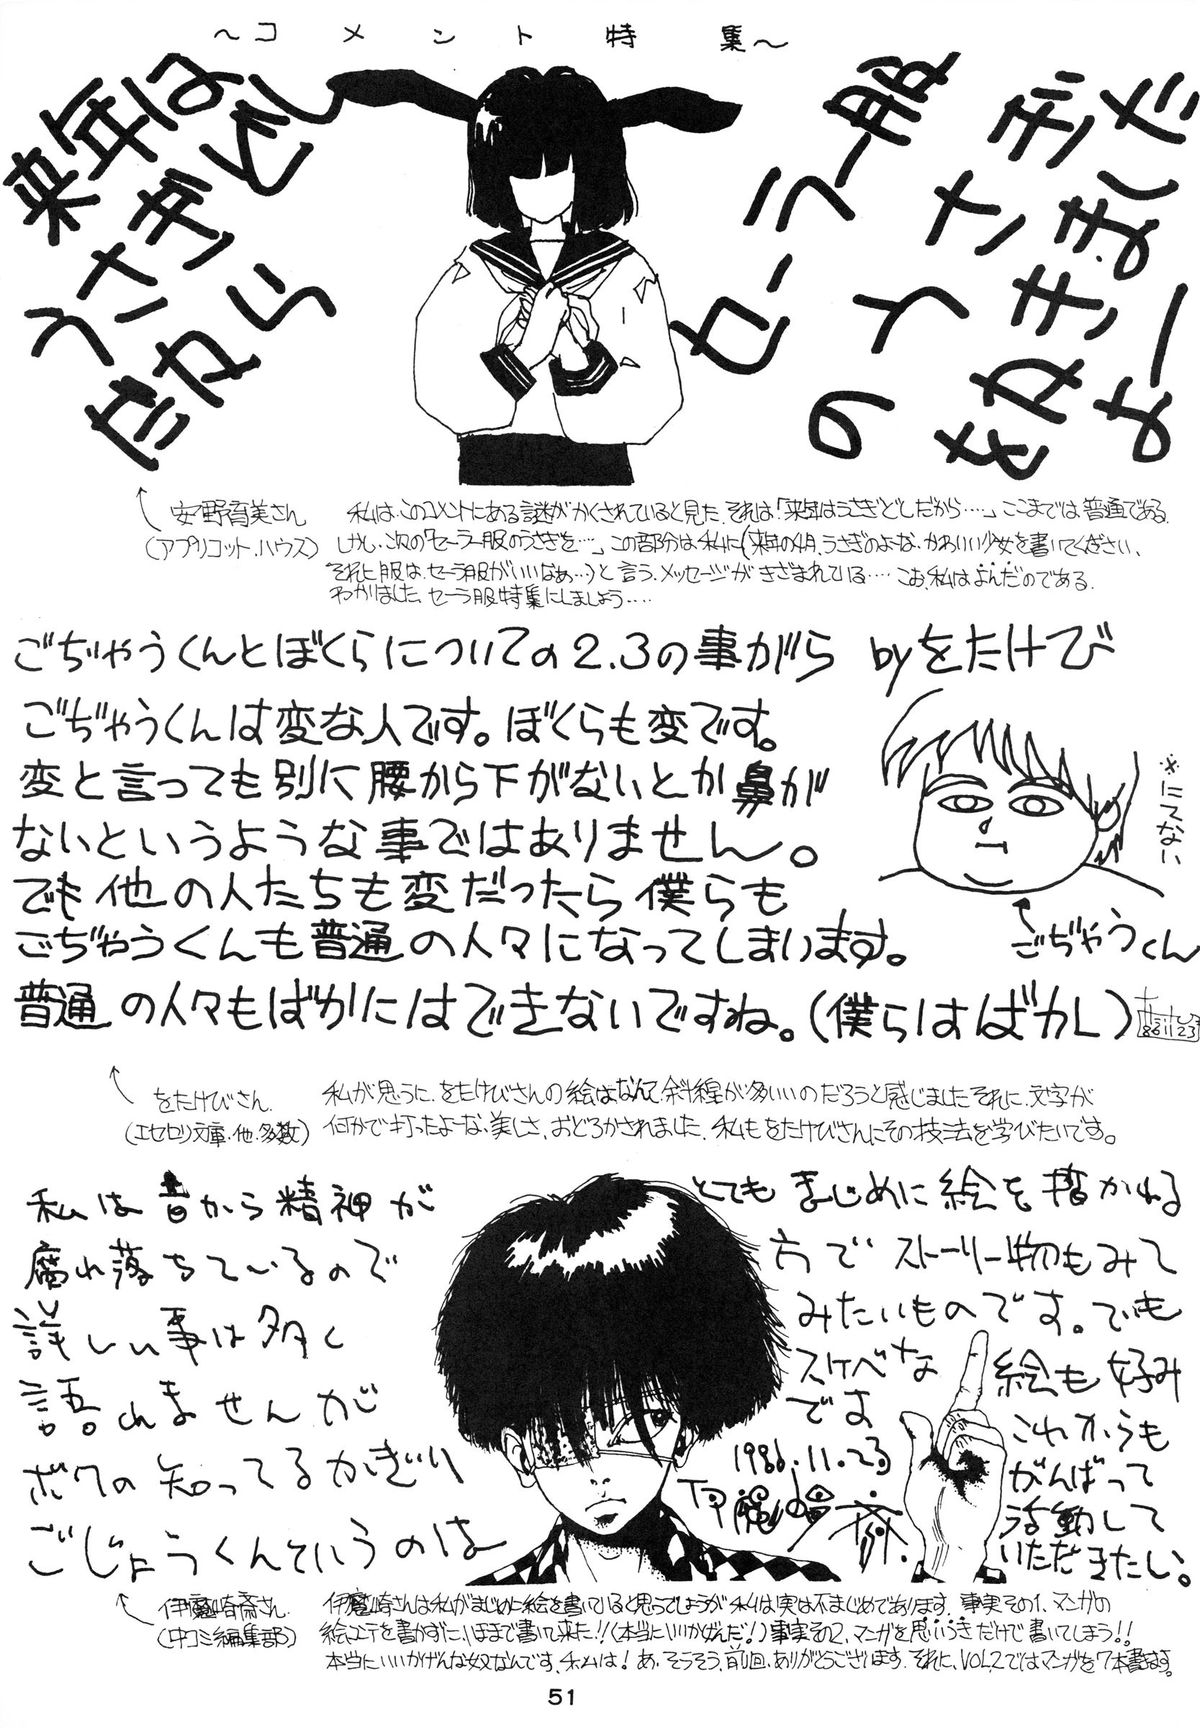 ～コメント特集～
来年は
うさぎどし
だから
セーラー服
のうさぎ
をかきました
よー
安野育美さん
(アプリコット.ハウス)
私は、このコメントにある謎がかくされていると見た。それは「来年はうさぎどしだから……」ここまでは普通である。
しかし、次の「セーラー服のうさぎを…」この部分は私に(来年の4月、うさぎのよーな、かわいい少女を書いてください、
それに服は、セーラ服がいいなぁ…)と言う、メッセージがきざまれている……こお、私はよんだのである。
わかりました。セーラ服特集にしましょう……
ごぢゃうくんとぼくらについての2.3の事がら byをたけび
ごぢゃうくんは変な人です。ぼくらも変です。
変と言っても別に腰から下がないとか鼻が
ないというような事ではありません。
でも他の人たちも変だったら僕らも
ごぢゃうくんも普通の人々になってしまいます。
普通の人々もばかにはできないですね。(僕らはばカし)
※にてない
ごぢゃうくん
86 11 23
をたけびさん
(エセロリ文庫.他.多数)
私が思うに、をたけびさんの絵はなんて、斜線が多いいのだろうと感じました。それに、文字が
何かで打ったよーな、美しさ、おどろかされました。私もをたけびさんにその技法を学びたいです。
私は昔から精神が
腐れ落ちているので
詳しい事は多く
語れませんが
ボクの知ってるかぎり
ごじょうくんていうのは
とてもまじめに絵を描かれる
方でストーリー物もみて
みたいものです。でも
スケベな絵も好み
です
これからも
がんばって
活動して
いただきたい。
1986.11.23
伊魔崎斎
伊魔崎斎さん
(中コミ編集部)
伊魔崎さんは私がまじめに絵を書いていると思うでしょうが私は実は不まじめであります。事実その1、マンガの
絵コテを書かずに、1ほまで書いて来た!!(本当にいいかげんだ!)事実その2、マンガを思いつきだけで書いてしまう!!
本当にいいかげんな奴なんです、私は!あ、そうそう、前回、ありがとうございます。それに、VOL.2ではマンガを7本書きます。
51